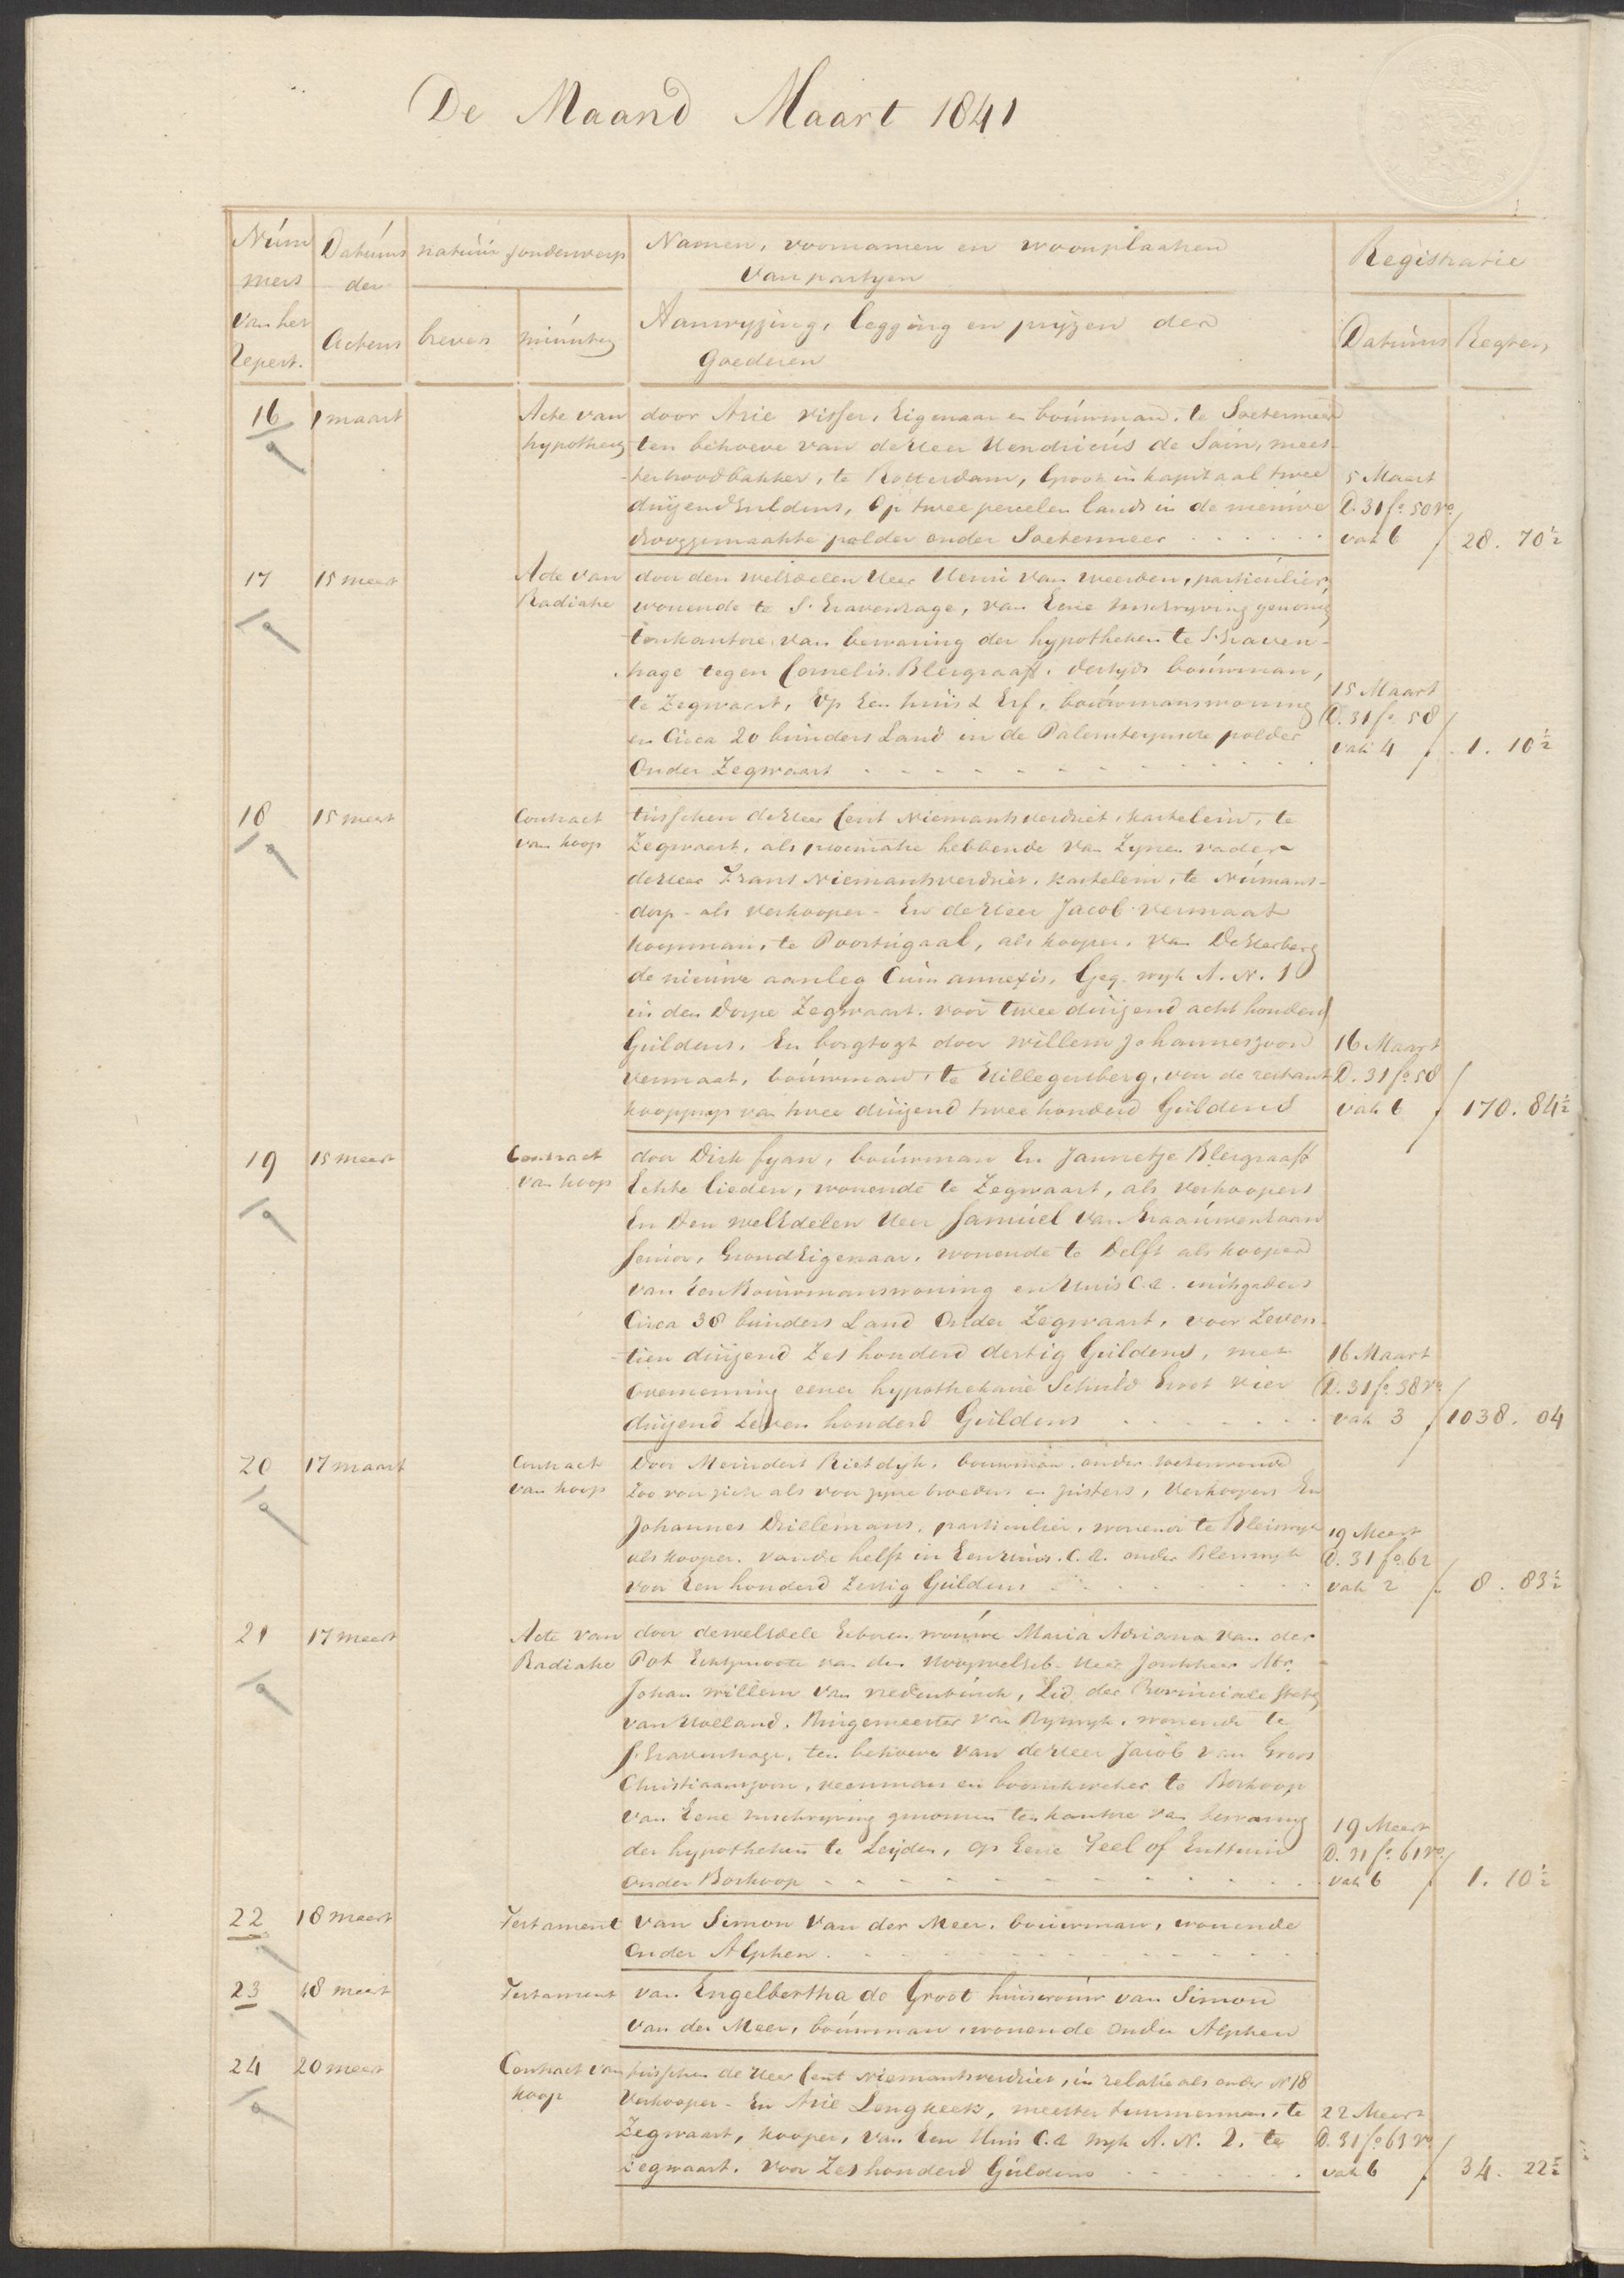 De Maand Maart 1841
Num
mers
van het
Repert.
Datums
der
Actens
natuur & onderwerp
breves
minuten
Namen, voornamen en woonplaatsen
van partyen
Aanwyzing, legging en pryzen der
Goederen
Registratie
Datums
Regten
16
1 maart
Acte van
hypotheeq
door Arie Visser, Eigenaar en bouwman, te Soetermeer
ten behoeve van de Heer Hendricus de Sain, mees-
ter broodbakker, te Rotterdam, Groot in kapitaal twee
duijzend Guldens, Op twee perceelen lands in de nieuwe
drooggemaakte polder onder Soetermeer
5 Maart
D. 31 fo. 50 vo
vak 6
f 28. 70½
17
15 meert
Acte van
Radiatie
door den welEdelen Heer Henri van Weerden, particulier,
wonende te S'Gravenhage, van Eene Inschryving genomen
ten kantore van bewaring der hypotheken te S'Graven-
hage tegen Cornelis Bleigraaft, destyds bouwman,
te Zegwaart, Op Een huis & Erf, bouwmanswoning
en Circa 20 bunders Land in de Palensteynsche polder
Onder Zegwaart
15 Maart
D. 31 fo. 58
vak 4
f 1. 10½
18
15 meert
Contract
van koop
tusschen de Heer Cent Niemantsverdriet, kastelein, te
Zegwaart, als procuratie hebbende van Zynen vader
de Heer Frans Niemantsverdriet, kastelein, te Numans-
dorp - als verkooper - En de Heer Jacob Vermaat
koopman, te Poortugaal, als kooper, van De Herberg
de nieuwe aanleg Cum annexis, Geq. wyk A. N. 1
in den dorpe Zegwaart, voor twee duijzend acht honderd
Guldens, En borgtogt door Willem Johanneszoon
Vermaat, bouwman, te Hillegersberg, voor de restant
koopprys van twee duijzend twee honderd Guldens
16 Maart
D. 31 fo 58
vak 6
f 170. 84½
19
15 meert
Contract
van koop
door Dirk Fyan, bouwman En Jannetje Bleigraaft
Echte lieden, wonende te Zegwaart, als verkoopers
En Den welEdelen Heer Samuel van Graauwenhaan
Senior, GrondEigenaar, wonende te Delft als kooper
van Een Bouwmanswoning en Huis C.a. mitsgaders
Circa 38 bunders Land Onder Zegwaart, voor Zeven-
tien duijzend Zes honderd dertig Guldens, met
overneming eener hypothekarie Schuld Groot vier
duijzend Zeven honderd Guldens
16 Maart
D. 31 fo. 38 vo
vak 3
f 1038. 04
20
17 maart
Contract
van koop
Door Meindert Rietdyk, bouwman, onder
Zoo voor zich als voor zyne broeders en zusters, Verkoopers En
Johannes Drielemans, particulier, wonende te Bleiswyk
als kooper, van de helft in Een Huis. C.a. onder Bleiswyk
voor Een honderd Zestig Guldens
19 Meert
D. 31 fo. 62
vak 2
f 8. 83½
21
17 meert
Acte van
Radiatie
door de welEdele Geboren vrouwe Maria Adriana van der
Pot Echtgenoote van den Hoogwelgeb. Heer Jonkheer Mr.
Johan Willem van Vredenburch, Lid der Provinciale Staten
van Holland, Burgemeester van Ryswyk, wonende te
S'Gravenhage, ten behoeve van de Heer Jacob van Groos
Christiaanszoon, veenman en boomkweeker te Boskoop
van Eene inschryving genomen ten kantore van bewaring
der hypotheken te Leijden, op Eene Geel of Enttuin
onder Boskoop
19 Meert
D. 31 fo. 61 vo
vak 6
f 1. 10½
22
18 meert
Testament
van Simon van der Meer, bouwman, wonende
onder Alphen
23
18 meert
Testament
van Engelbertha de Groot huisvrouw van Simon
van der Meer, bouwman, wonende onder Alphen
24
20 meert
Contract van
koop
tusschen de Heer Cent Niemantsverdriet, in relatie als onder N 18
Verkooper - En Arie Lengkeek, meester timmerman, te
Zegwaart, kooper, van Een Huis C.a wyk A. N. 2. te
Zegwaart. Voor Zes honderd Guldens
22 Meert
D. 31 fo 63 vo
vak 6
f 34. 22½